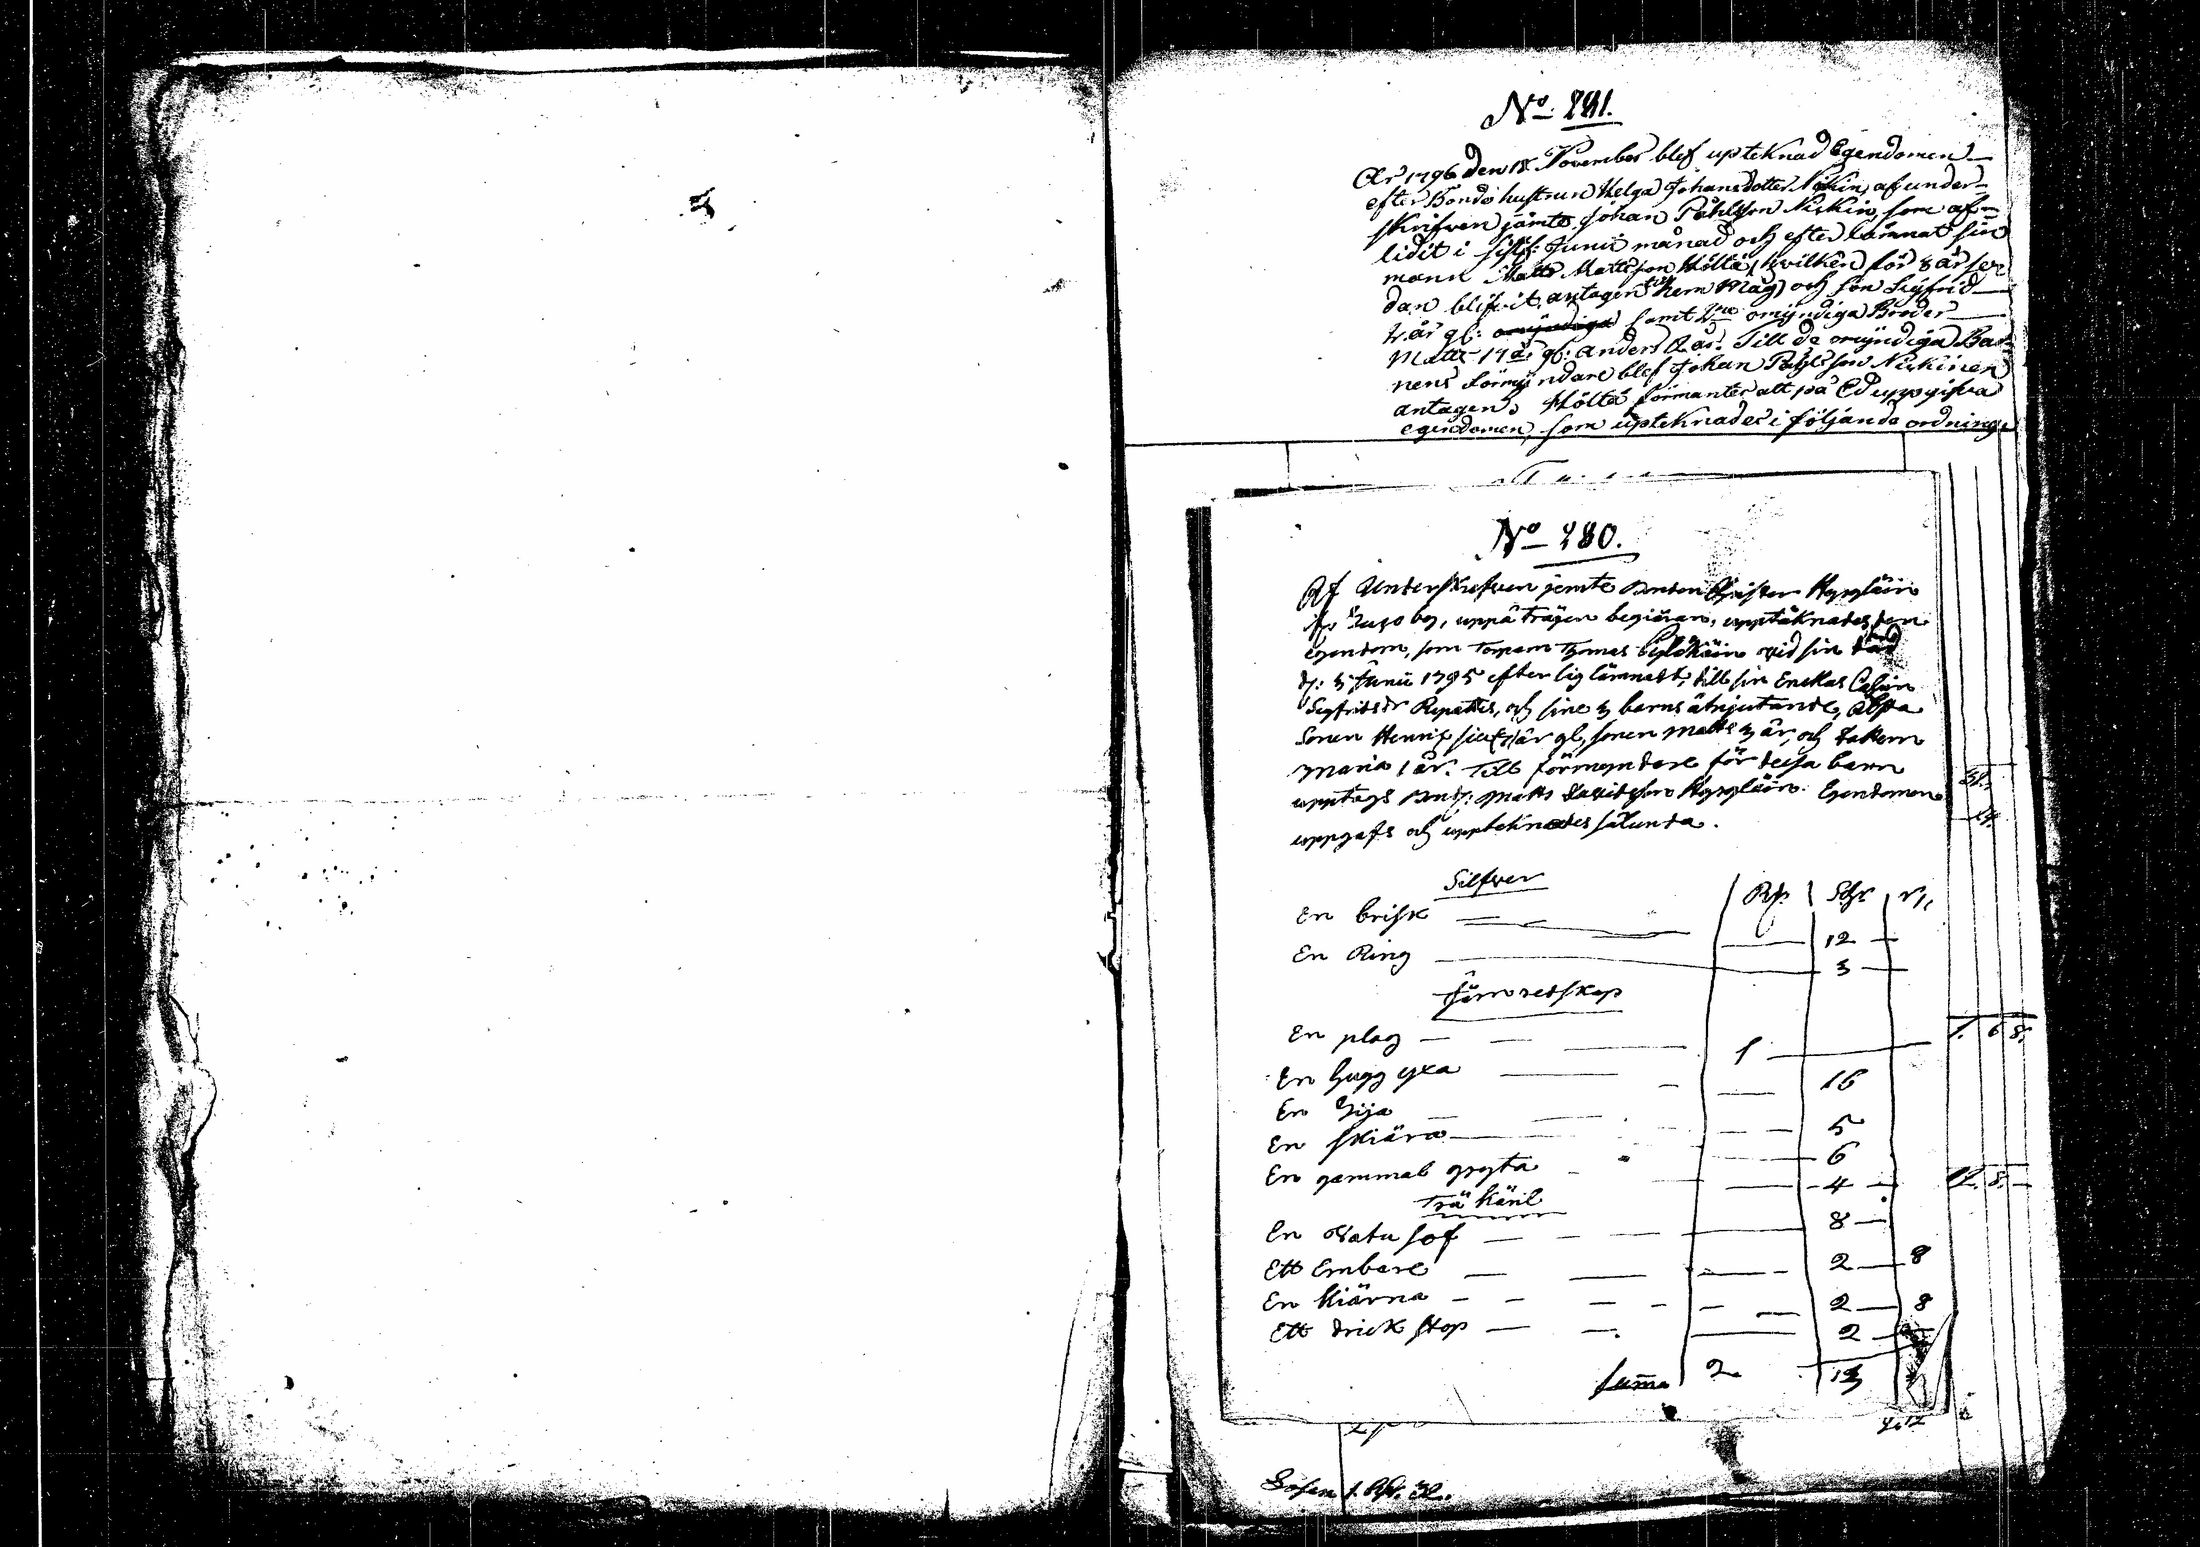 No 281.
År 1796 den 18 November blef upteknad Egendomen
efter Bonde hustrun Helga Johansdotter Niskin, af under-
skrifven jämte Johan Påhlsson Niskin, som af-
lidit i sistl: Junii månad och efterlämnat sin
mann Matts Mattsson Höltä, hvilken för 8 år se-
dan blifvit antagen till hem Måg och son Sigfrid
2 år gl: omÿndiga samt 2ne omÿndiga Bröder
Matts 17 år gl: Anders år. Till de omÿndiga Bar-
nens Förmÿndare blef Johan Påhlsson Niskinen
antagen. Höltä förmantes att på Ed uppgifva
egendomen, som upteknades i följande ordning.
No 280.
Af Underskrefven jemte Bonden Christer Hyppläin
by, uppå trägen begiäran, upptäknades den
egendom, som Torparn Thomas vid sin död
d: 5 Junii 1795 efter sig lämnadt, till sin Enckas Caisin
Sigfridsdr Repattis, och sine 3 barns åtnjutande, äldsta
Sonen Henrix år gl, sonen Matts 3 år, och dottern
Maria 1 år. Till förmyndare för dessa barn
upptogs Bnd: Matts Davidsson Hyppläin. Egendomen
uppgafs och upptecknades sålunda.
Silfver
Rd. Skr
En brisk 12
En Ring 3
Järn redskap
En plog 1
En hugg yxa 16
En Lija 5
En skiära 6
En gammal gryta 4
Trä käril
En Vatu sof 8
Ett Embare 2 8
En Kiärna 2 8
Ett drick stop 2
Summa 2 13
1. 6 8.
12. 8.